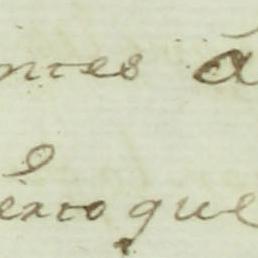 ntes á
exto que